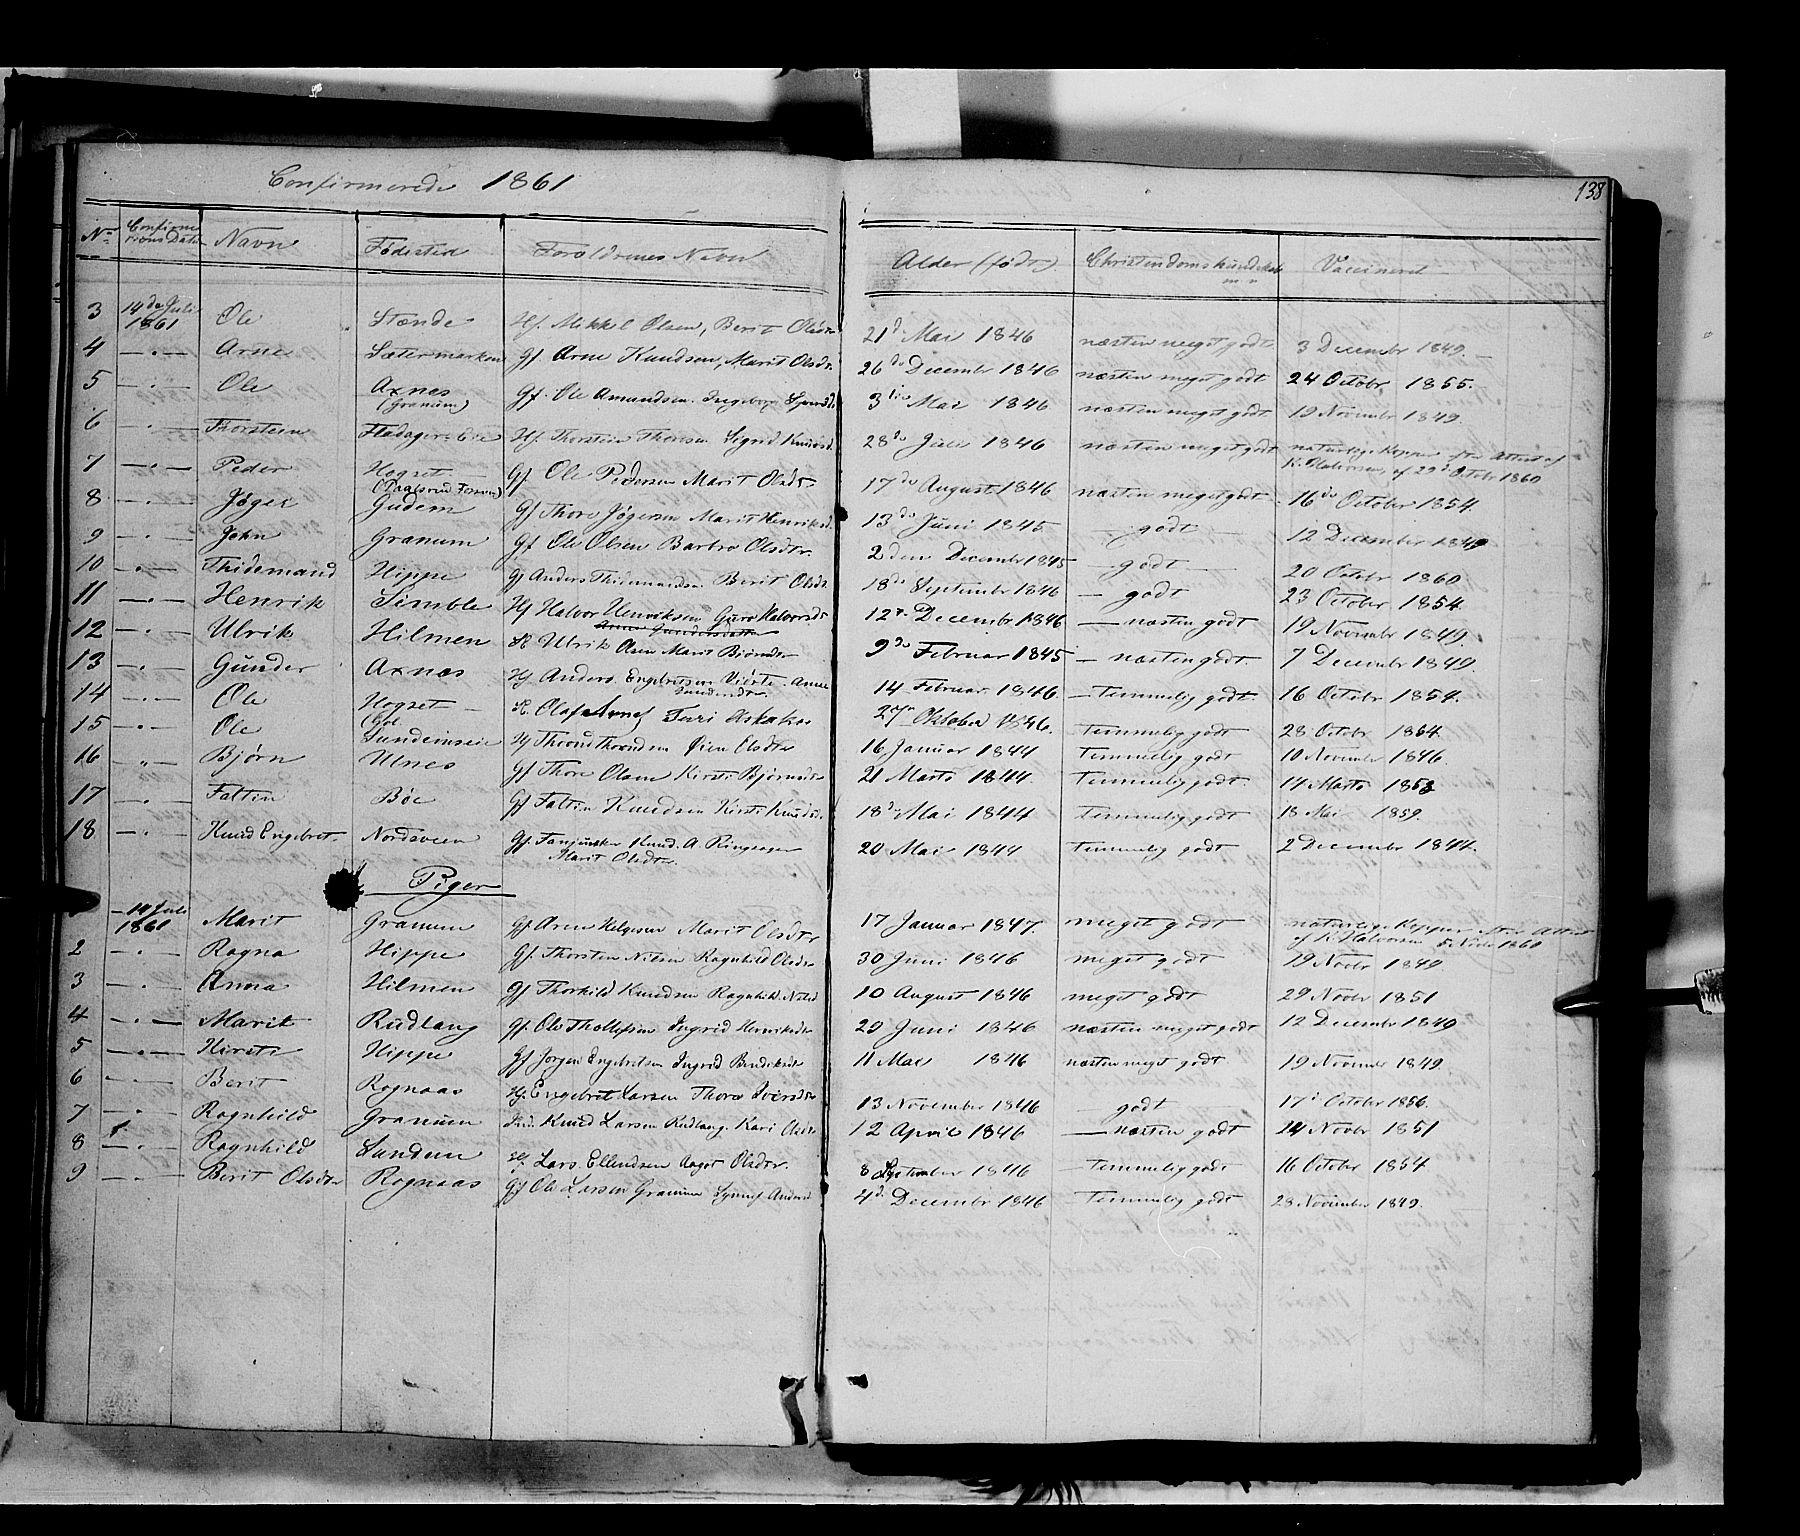 138
Confirmerede 1861
No Confirmations Dato Navn Fødested Forældrenes Navn Alder (født) Christendomskundskab m.v. Vaccineret
3 14de Juli 1861 Ole Stende Hf. Mikkel Olsen, Berit Olsdtr 21de Mai 1846 næsten meget godt 3 Decembr 1849.
4 — " — Arne Sætermarken Gf Arne Knudsen, Marit Olsdr. 26de Decembr 1846 næsten meget godt 24 Octobr 1855.
5 — " — Ole Axnes (Granum) Gf. Ole Amundsen. Ingeborg 3die Mai 1846 næsten meget godt 19 Novembr 1849.
6 — " — Thorstein Hf. Thorstein Thoresen Sigrid Knudsd. 28de Juli 1846 næsten meget godt naturlige Kopper efter Attest af K. Halvorsen, af 29de Octbr 1860
7 — " — Peder Hogset Gf Ole Pedersen Marit Olsdr. 17de August 1846 næsten meget godt 16de October 1854.
8 — " — Jøger Gudem Gf Thore Jøgersen Marit Henriksd. 13de Juni 1845 godt 12 December 1849
9 — " — John Granum Gf Ole Olsen Barbro Olsdtr. 2den December 1845 godt 20 Octobr 1860
10 — " — Thidemand Hippe Gf Anders Thidemandsen Berit Olsdt 18de September 1846 — godt 23 October 1854
11 — " — Henrik Simble Hf Halvor Henriksen Guro Halvorsdr 12te December 1846 — næsten godt 19 Novembr 1849.
12 — " — Ulrik Hilmen H Ulrik Olsen Marit Bjørnsdr 9de Februar 1845 — næsten godt. 7 Decembr 1849.
13 — " — Gunder Axnæs Hf Anders Engebretsen Anne Gundersdtr. 14 Februar 1846 — temmelig godt. 16 Octobr 1854.
14 — " — Ole Hogset H. Olaf 27de Oktober 1846. temmelig godt 28 Octobr 1854.
15 — " — Ole Sundeinseie Hf Thrond Throndsen Olsdtr 16 Januar 1844 temmelig godt 10 Novembr 1846.
16 — " — Bjørn Ulnes Gf Thore Olsen Kirsti Bjørnsdr 21 Marts 1844 temmelig godt. 14 Marts 1853
17 — " — Faltin Bøe Gf Faltin Knudsen Kirsti Knudsdr. 18de Mai 1844 temmelig godt 18 Mai 1859.
18 — " — Knud Engebret. Nordsveen Gf. Fanjunker Knud. A. Ringeager Marit Olsdtr. 20 Mai 1844 temmelig godt 2 Decembr 1844.
Piger
— 14 Juli 1861 Marit Granum Gf. Aren Helgesen Marit Olsdtr 17 Januar 1847. meget godt naturlige Kopper efter Attest af K. Halvorsen 1860
2 — " — Ragna Hippe Gf. Thorsten Nilsen Ragnhild Olsdr 30 Juni 1846 meget godt 19 Novbr 1849
3 — " — Anna Hilmen Gf Thorkild Knudsen Ragnhild. Nilsd 10 August 1846 meget godt 29 Novbr 1851
4 — " — Marit Rudlang Gf. Ole Thollefsen Ingrid Henriksdr 29 Juni 1846 næsten meget godt 12 Decembr 1849
5 — " — Kirsti Hippe Gf Jørgen Engebretsen Ingrid Bendiksdr 11 Mai 1846 næsten meget godt 19 Novembr 1849.
6 — " — Berit Rognaas Hf. Engebret Larsen Thora Iversdtr 13 November 1846 godt 17de October 1856.
7 — " — Ragnhild Granum Knud Larsen Rudlang. Kari Olsdtr 12 April 1846 — næsten godt 24 Novbr 1851
8 — " — Ragnhild Sundeim Hf. Lars Ellendsen Aagot Olsdtr. 8 September 1846 temmelig godt 16 October 1854
9 — " — Berit Olsdtr Rognaas Gf Ole Larsen Granum Synnøf Andersd 4de Decembr 1846 temmelig godt 28 November 1849.